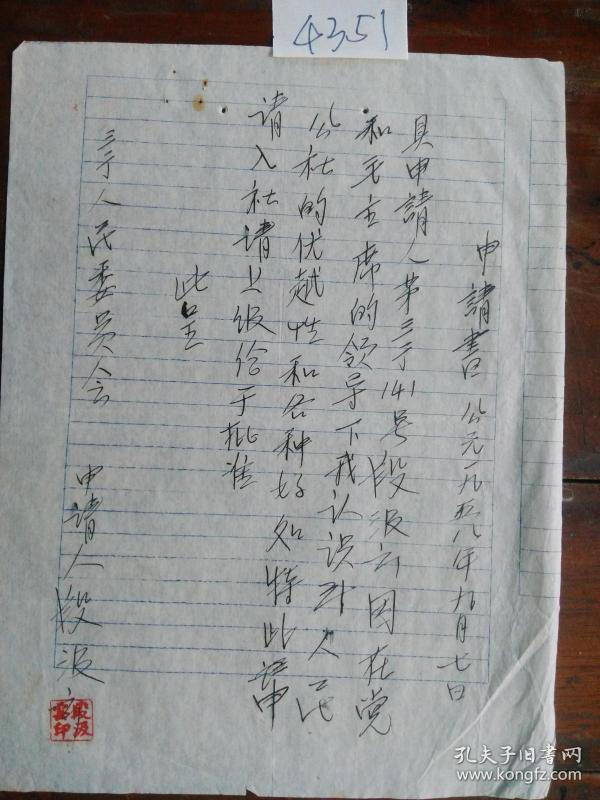 4351
申請書 公元一九五八年九月七日
具申請人第三丁141号段汲云因在党
和毛主席的领导下我认识到人民
公社的优越性和各种好处特此申
请入社请上级给于批准
此呈
三丁人民委员会
申请人段汲云
段汲雲印
孔夫子旧書网
www.kongfz.com